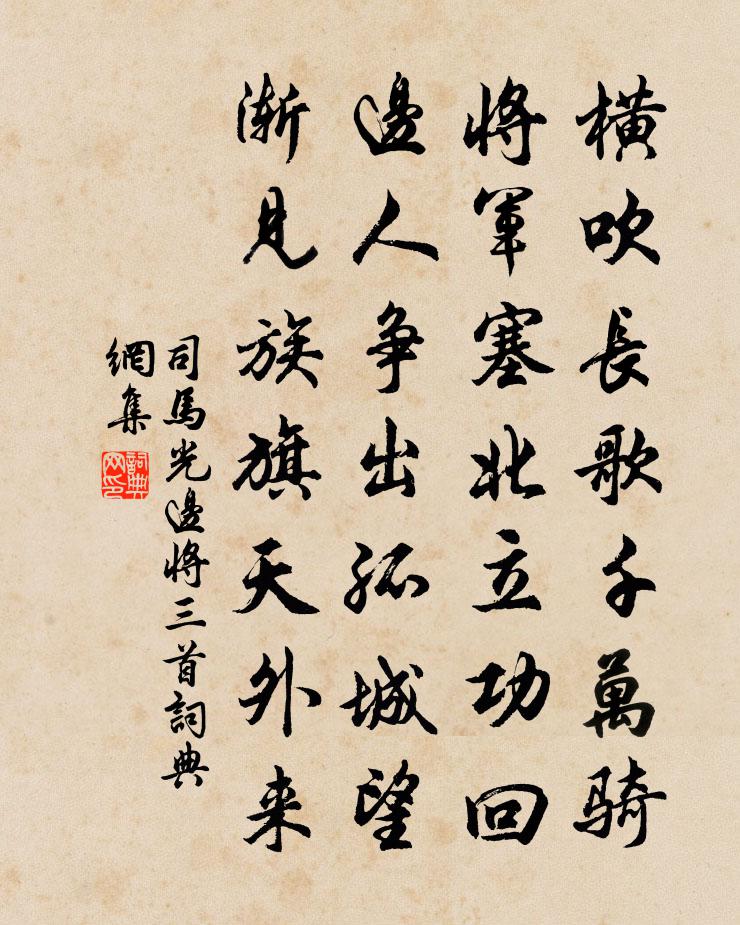 橫吹長歌千萬骑
將軍塞北立功回
邊人争出孤城望
漸見族旗天外来
司馬光邊將三首詞典
網集
詞典
网印